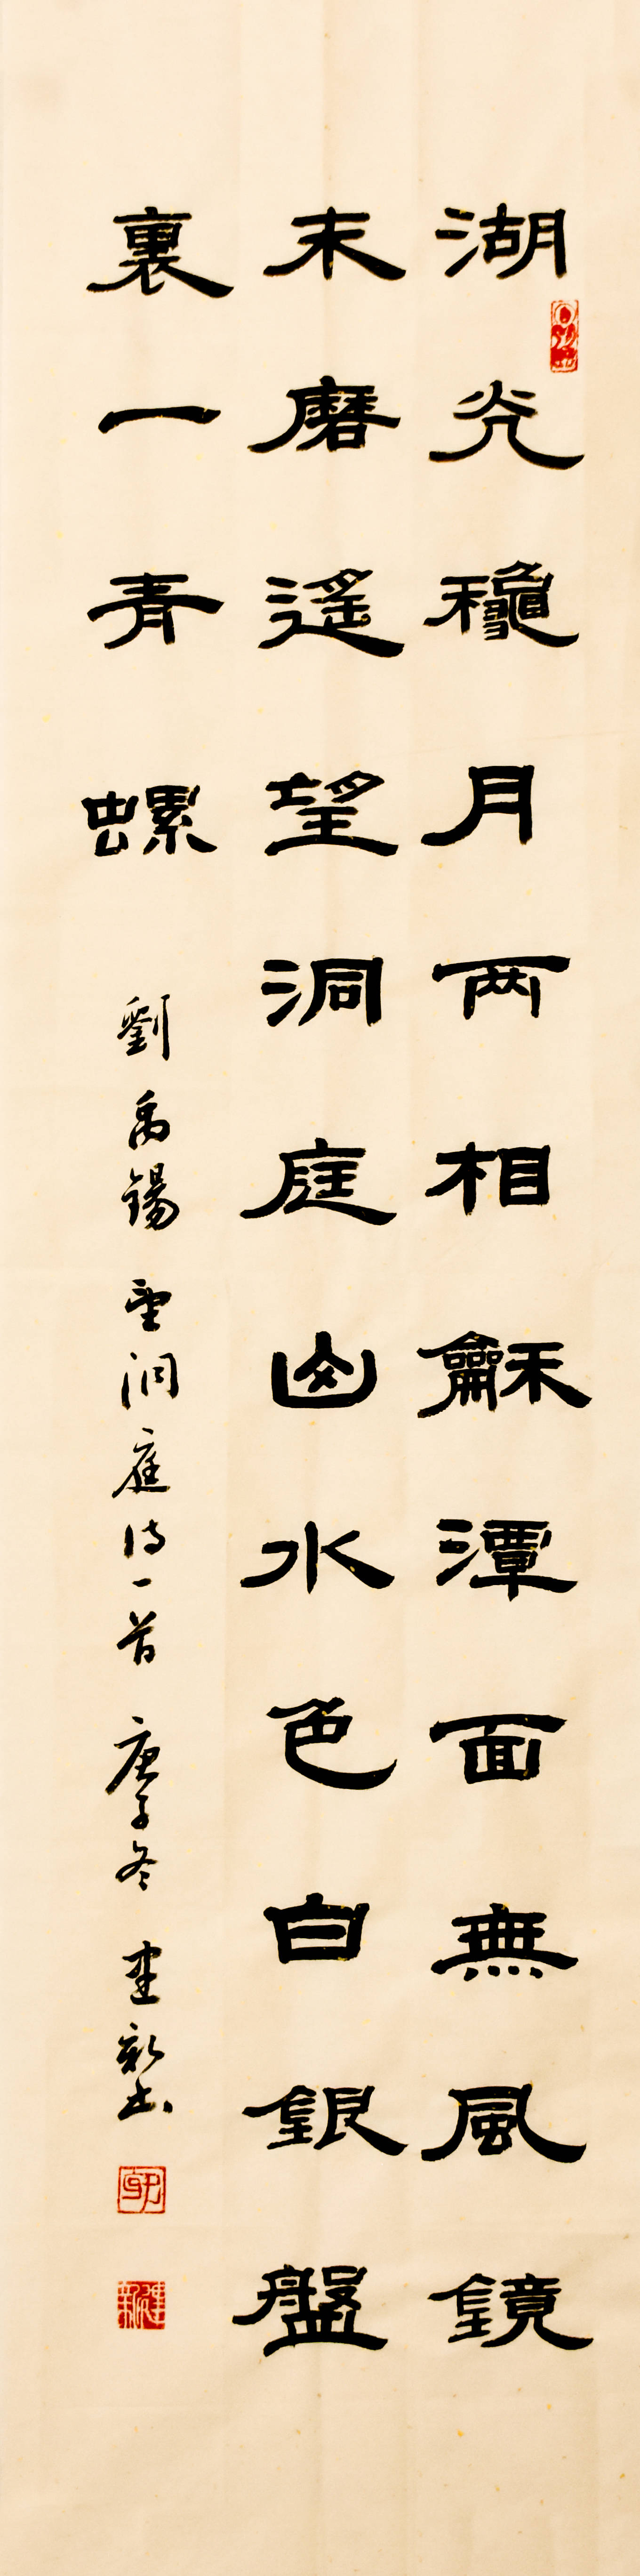 湖光龝月两相龢潭面無風鏡
末磨遙望洞庭山水色白銀盤
裏一青螺
劉禹錫望洞庭詩一首 庚子冬 建新書